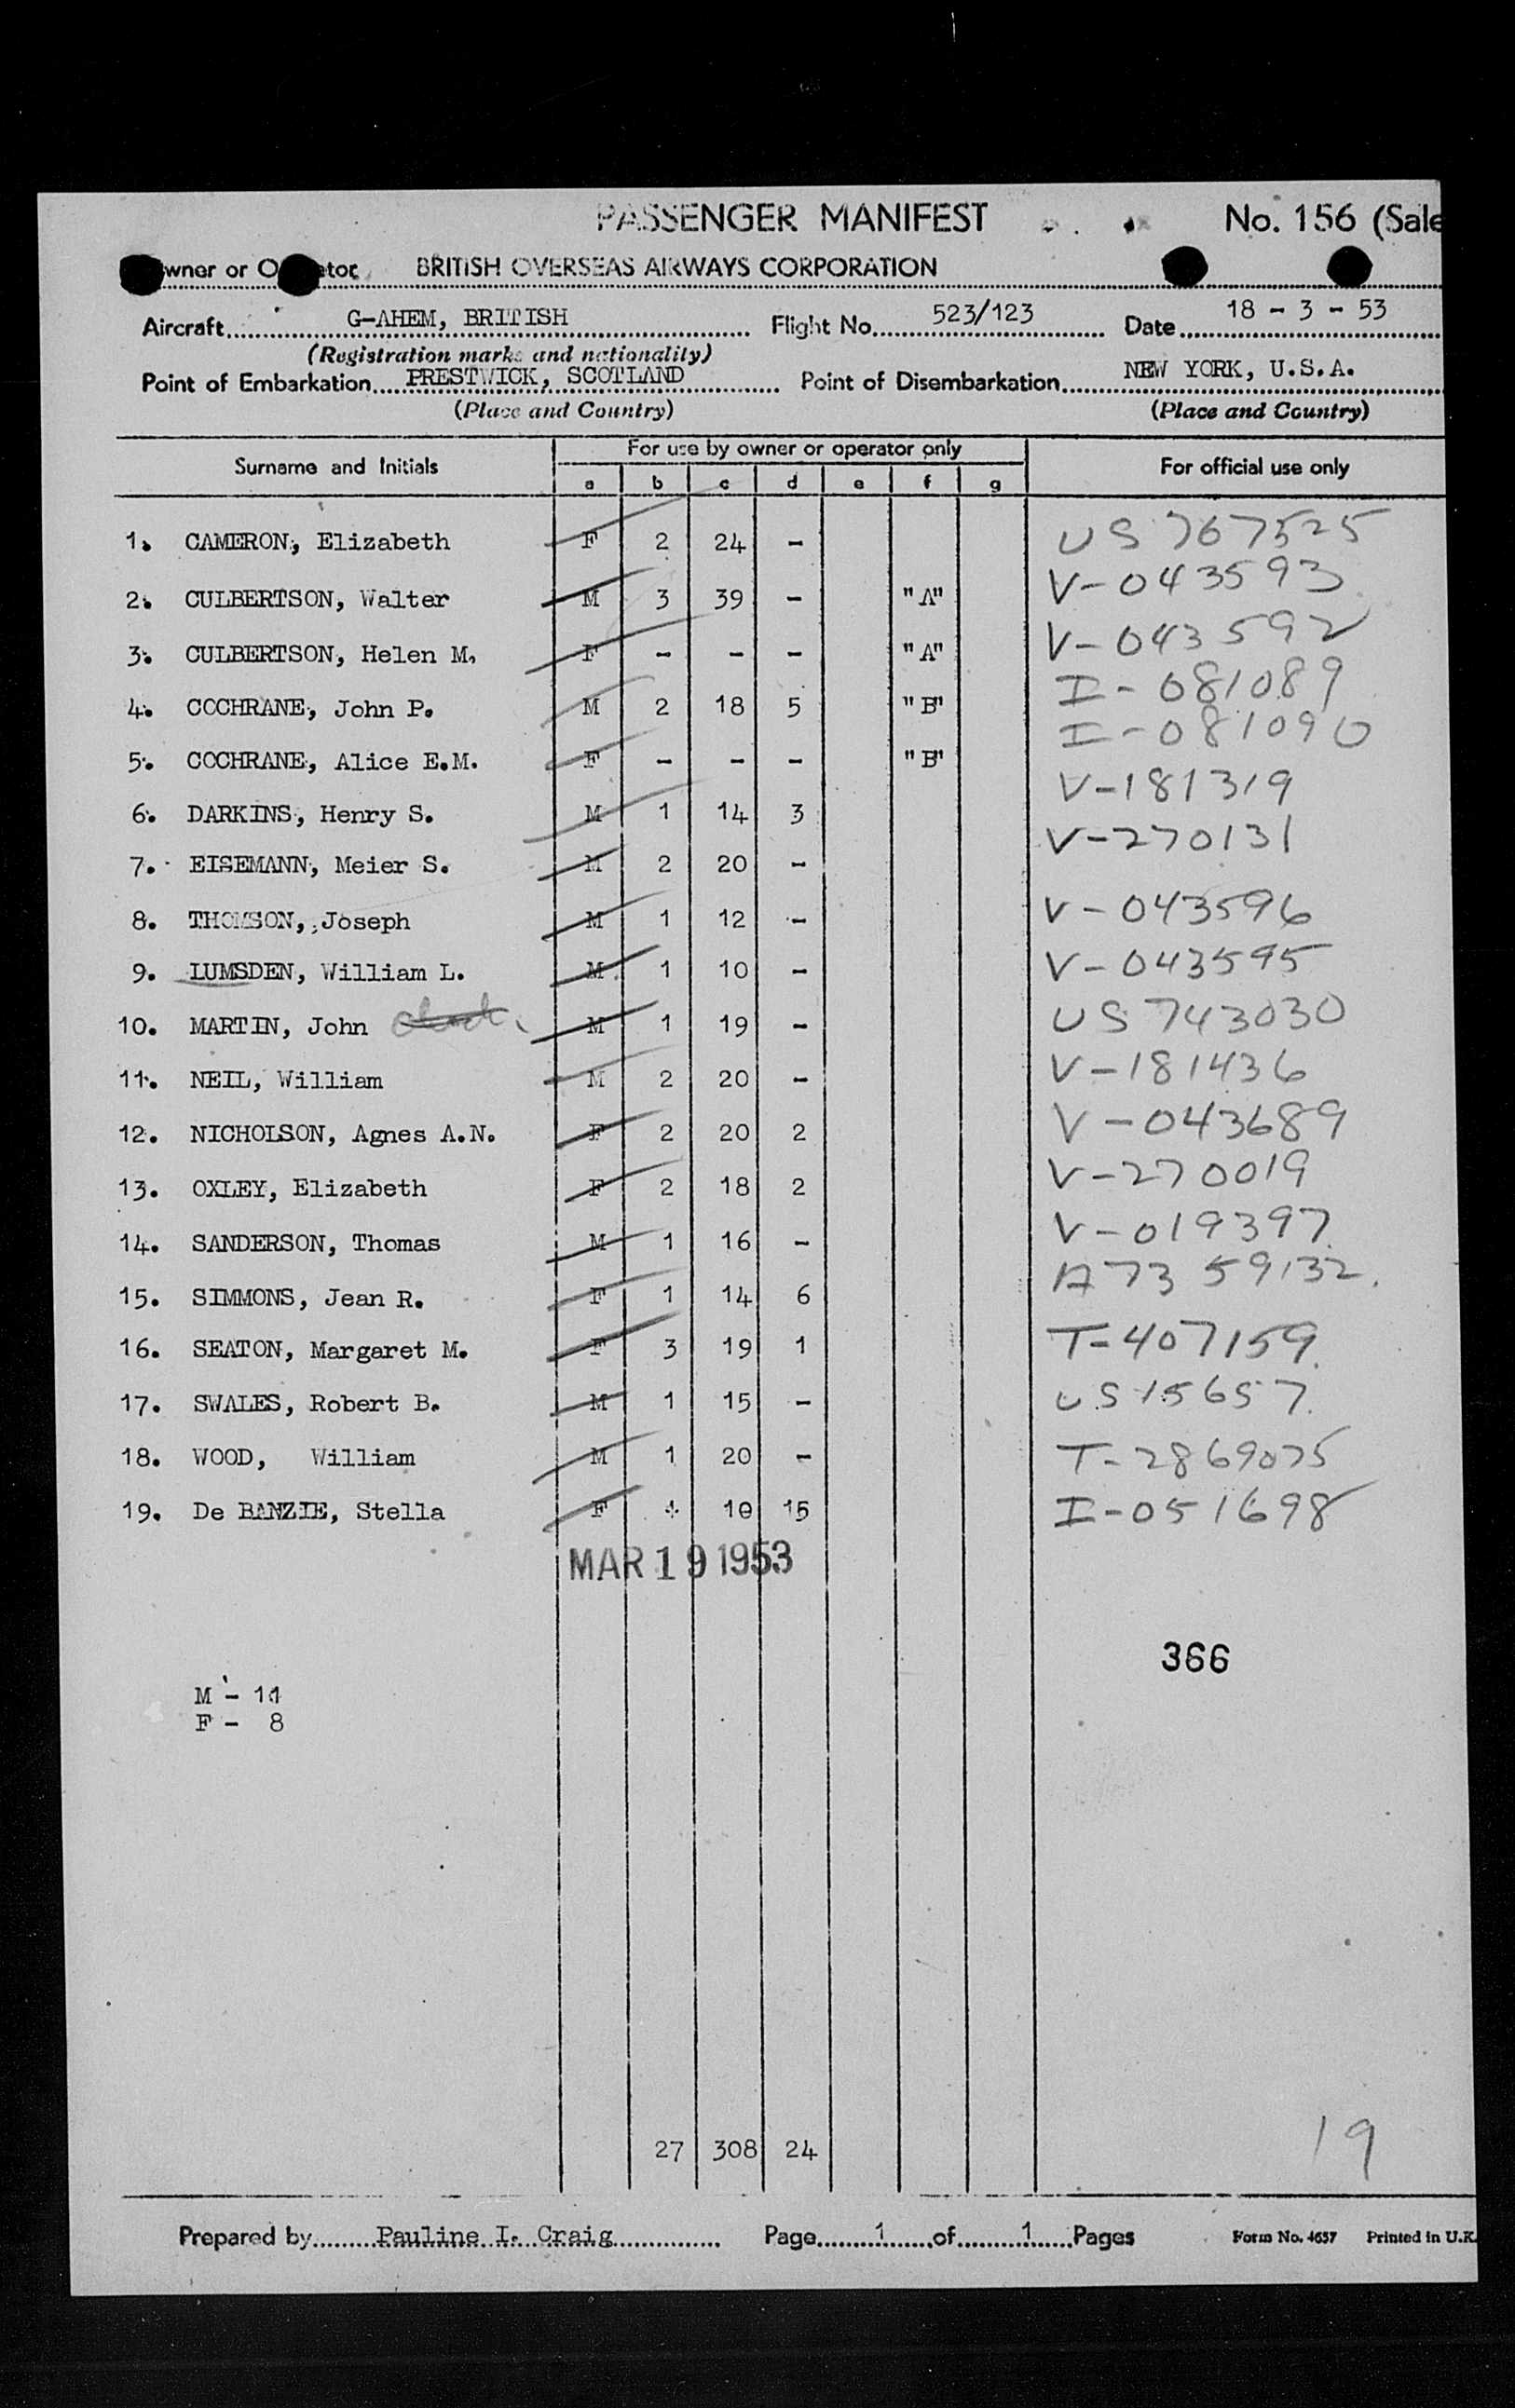 PASSENGER MANIFEST No. 156 (Sale
wner or O etor BRITISH OVERSEAS AIRWAYS CORPORATION
Aircraft G-AHEM, BRITISH Flight No. 523/123 Date 18 - 3 - 53
(Registration marks and nationality)
Point of Embarkation PRESTWICK, SCOTLAND Point of Disembarkation NEW YORK, U.S.A.
(Place and Country) (Place and Country)
Surname and Initials For use by owner or operator only For official use only
a b c d e f g
1. CAMERON, Elizabeth F 2 24 - US 767525
2. CULBERTSON, Walter M 3 39 - "A" V-043593
3. CULBERTSON, Helen M. F - - - "A" V-043592
4. COCHRANE, John P. M 2 18 5 "B" I-081089
5. COCHRANE, Alice E.M. F - - - "B" I-081090
6. DARKINS, Henry S. M 1 14 3 V-181319
7. EISEMANN, Meier S. M 2 20 - V-270131
8. THOMSON, Joseph M 1 12 - V-043596
9. LUMSDEN, William L. M 1 10 - V-043595
10. MARTIN, John M 1 19 - US 743030
11. NEIL, William M 2 20 - V-181436
12. NICHOLSON, Agnes A.N. F 2 20 2 V-043689
13. OXLEY, Elizabeth F 2 18 2 V-270019
14. SANDERSON, Thomas M 1 16 - V-019397
15. SIMMONS, Jean R. F 1 14 6 A73 59132.
16. SEATON, Margaret M. F 3 19 1 T-407159
17. SWALES, Robert B. M 1 15 - US 15657
18. WOOD, William M 1 20 - T-2869075
19. De BANZIE, Stella F 10 15 I-051698
MAR 19 1953
366
M - 11
F - 8
27 308 24 19
Prepared by Pauline I. Craig Page 1 of 1 Pages Form No. 4657 Printed in U.K.